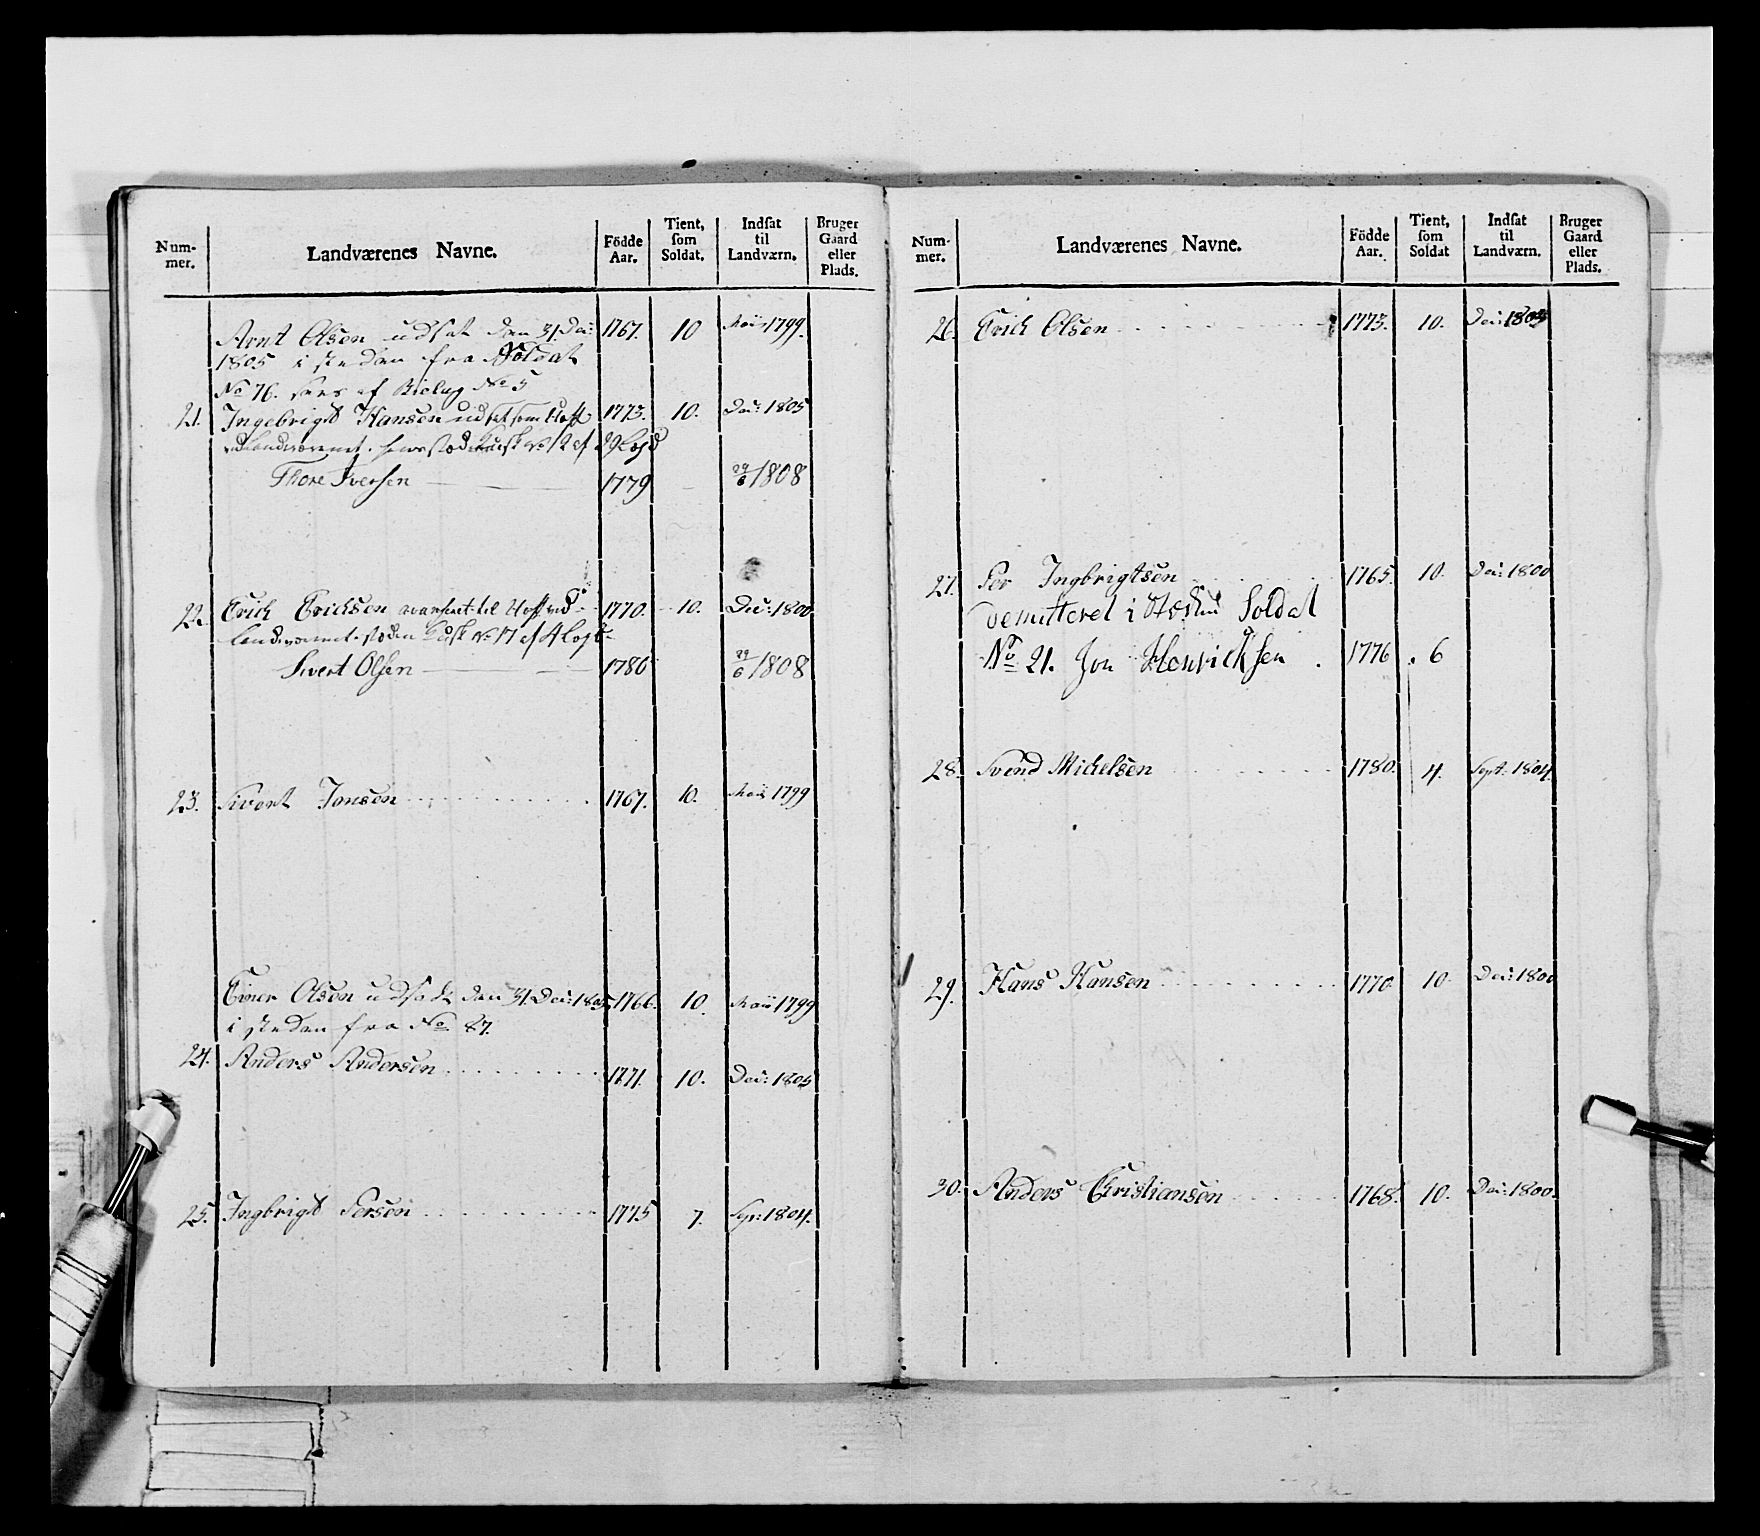 Num-
mer.
Landværenes Navne.
Födde
Aar.
Tient,
som
Soldat.
Indsat
til
Landværn.
Bruger
Gaard
eller
Plads.
Arnt Olsen udsat den 31. Dec: 1767. 10 Maii 1799.
1805 i steden fra Soldat
No 76.
21. Ingebrigt Hansen 1773. 10. Dec: 1805
Thore Iversen 1779 29/6 1808
22. Erich Erichsen 1770. 10. Dec: 1800
Sivert Olsen 1780 29/6 1808
23. Sivert Jonsen 1767. 10. Maii 1799
Einer Olsen udsadt den 31. Dec: 1805 1766. 10. Maii 1799
i steden fra No 87.
24. Anders Andersen 1771. 10. Dec: 1805
25. Ingbrigt Persen 1775 7. Sept: 1804.
Num-
mer.
Landværenes Navne.
Födde
Aar.
Tient,
som
Soldat
Indsat
til
Landværn.
Bruger
Gaard
eller
Plads.
26. Erich Olsen 1773. 10. Dec: 1805
27. Per Ingbrigtsen 1765. 10. Dec: 1800
demitteret i Steden Soldat
No 21. Jon Henrichsen. 1776. 6
28. Svend Michelsen 1780. 4. Sept: 1804.
29. Hans Hansen 1770. 10. Dec: 1800
30. Anders Christiansen 1768. 10. Dec: 1800.